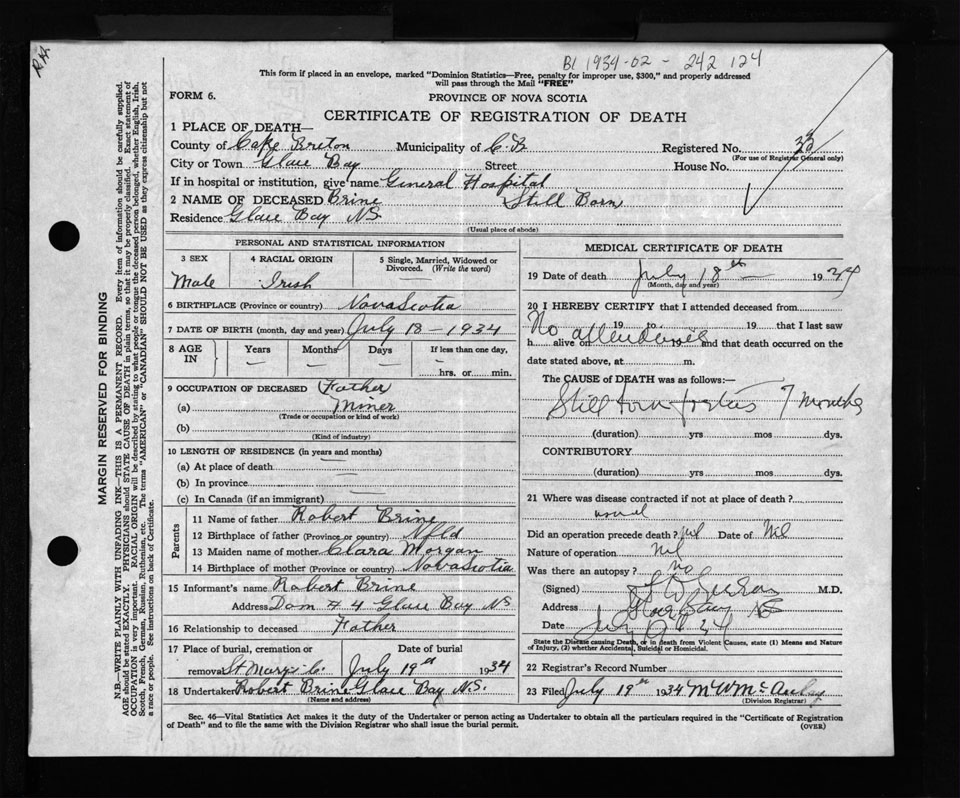 R.H.
BI 1934-02 - 242 124
This form if placed in an envelope, marked "Dominion Statistics—Free, penalty for improper use, $300," and properly addressed
will pass through the Mail "FREE"
FORM 6.
PROVINCE OF NOVA SCOTIA
CERTIFICATE OF REGISTRATION OF DEATH
1 PLACE OF DEATH—
County of Cape Breton Municipality of C.B Registered No. 33
(For use of Registrar General only)
City or Town Glace Bay Street House No.
If in hospital or institution, give name General Hospital
2 NAME OF DECEASED Brine Still Born
Residence Glace Bay NS
(Usual place of abode)
PERSONAL AND STATISTICAL INFORMATION
3 SEX 4 RACIAL ORIGIN 5 Single, Married, Widowed or
Divorced. (Write the word)
Male Irish
6 BIRTHPLACE (Province or country) Nova Scotia
7 DATE OF BIRTH (month, day and year) July 18 - 1934
8 AGE IN Years Months Days If less than one day,
— — — hrs. or min.
9 OCCUPATION OF DECEASED Father
(a) Miner
(Trade or occupation or kind of work)
(b)
(Kind of industry)
10 LENGTH OF RESIDENCE (in years and months)
(a) At place of death
(b) In province
(c) In Canada (if an immigrant)
Parents
11 Name of father Robert Brine
12 Birthplace of father (Province or country) Nfld
13 Maiden name of mother Clara Morgan
14 Birthplace of mother (Province or country) Nova Scotia
15 Informant's name Robert Brine
Address Dom # 4 Glace Bay NS
16 Relationship to deceased Father
17 Place of burial, cremation or Date of burial
removal St Marys C. July 19th 1934
18 Undertaker Robert Brine Glace Bay N.S.
(Name and address)
MEDICAL CERTIFICATE OF DEATH
19 Date of death July 18th 1934
(Month, day and year)
20 I HEREBY CERTIFY that I attended deceased from
No attendance 19 to 19 that I last saw
h alive on and that death occurred on the
date stated above, at m.
The CAUSE OF DEATH was as follows:—
Still born foetus 7 months
(duration) yrs mos dys.
CONTRIBUTORY
(duration) yrs mos dys.
21 Where was disease contracted if not at place of death?
usual
Did an operation precede death? nil Date of Nil
Nature of operation nil
Was there an autopsy? no
(Signed) M.D,
Address Glace Bay NS
Date July 34
State the Disease causing Death, or in death from Violent Causes, state (1) Means and Nature
of Injury, (2) whether Accidental, Suicidal or Homicidal.
22 Registrar's Record Number
23 Filed July 19th 1934 McAulay
(Division Registrar)
Sec. 46—Vital Statistics Act makes it the duty of the Undertaker or person acting as Undertaker to obtain all the particulars required in the "Certificate of Registration
of Death" and to file the same with the Division Registrar who shall issue the burial permit. (OVER)
MARGIN RESERVED FOR BINDING
N.B.—WRITE PLAINLY WITH UNFADING INK—THIS IS A PERMANENT RECORD. Every item of information should be carefully supplied.
AGE should be stated EXACTLY. PHYSICIANS should STATE CAUSE OF DEATH in plain terms, so that it may be properly classified. Exact statement of
OCCUPATION is very important. RACIAL ORIGIN will be described by stating to what people or tongue the deceased person belonged, whether English, Irish,
Scotch, French, German, Russian, Ruthenian, etc. The terms "AMERICAN" or "CANADIAN" SHOULD NOT BE USED as they express citizenship but not
a race or people. See instructions on back of Certificate.